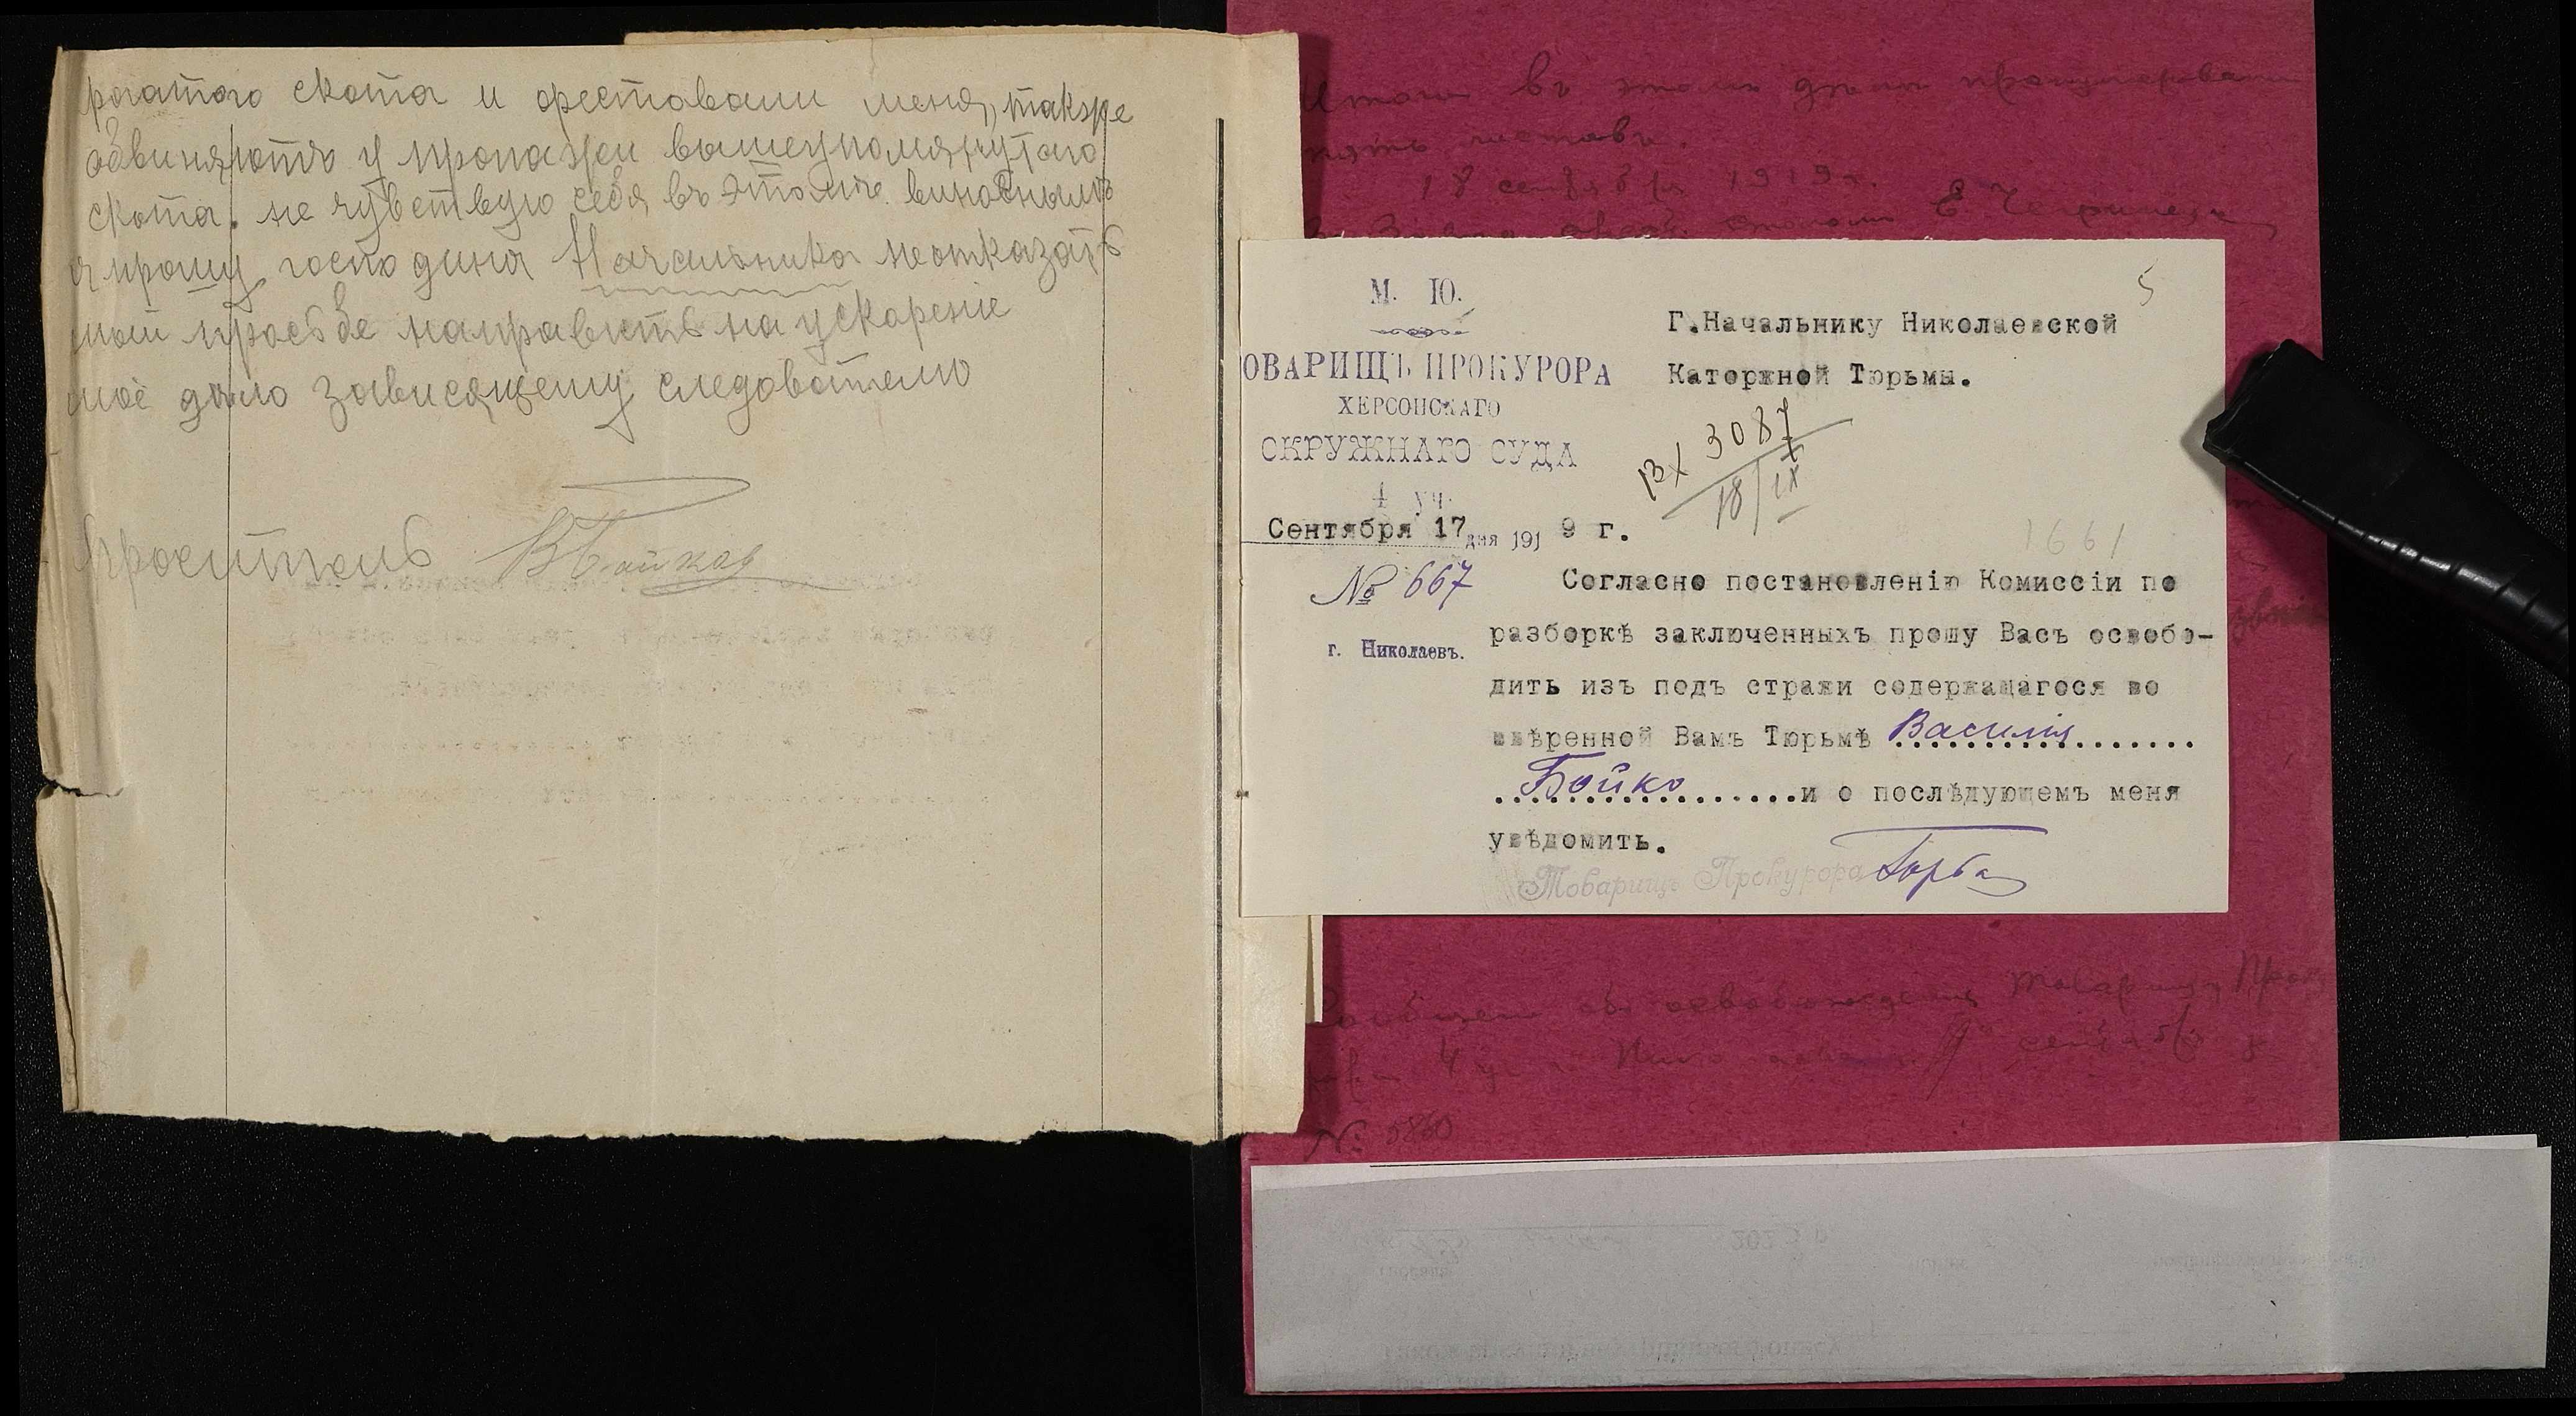 рогатого скота и орестовали меня, также
обвиняютъ у пропажи вышеупомянутаго
скота. не чувствую себя въ этомъ виновнымъ
я прошу господина Началника неотказать
мой просьбе направить на ускореніе
моё дѣло зависящему следователю
Проситель ВБойко
Итого въ этомъ дѣлѣ пронумеровано
пять листовъ.
18 сентября 1919 г.
5
М. Ю.
ОВАРИЩЪ ПРОКУРОРА
ХЕРСОНСКАГО
ОКРУЖНАГО СУДА
4 уч.
Сентября 17 дня 1919 г.
№ 667
г. Николаевъ.
Г.Начальнику Николаевской
Каторжной Тюрьмы.
3087
18/IX
1661
Согласно постановленію Комиссіи по
разборкѣ заключенныхъ прошу Васъ освобо-
дить изъ подъ стражи содержащагося во
ввѣренной Вамъ Тюрьмѣ Василія
Бойко и о послѣдующемъ меня
увѣдомить.
Товарищъ Прокурора
объ освобожденіи Товарищу Прок
4 уч. сентября
№ 5860